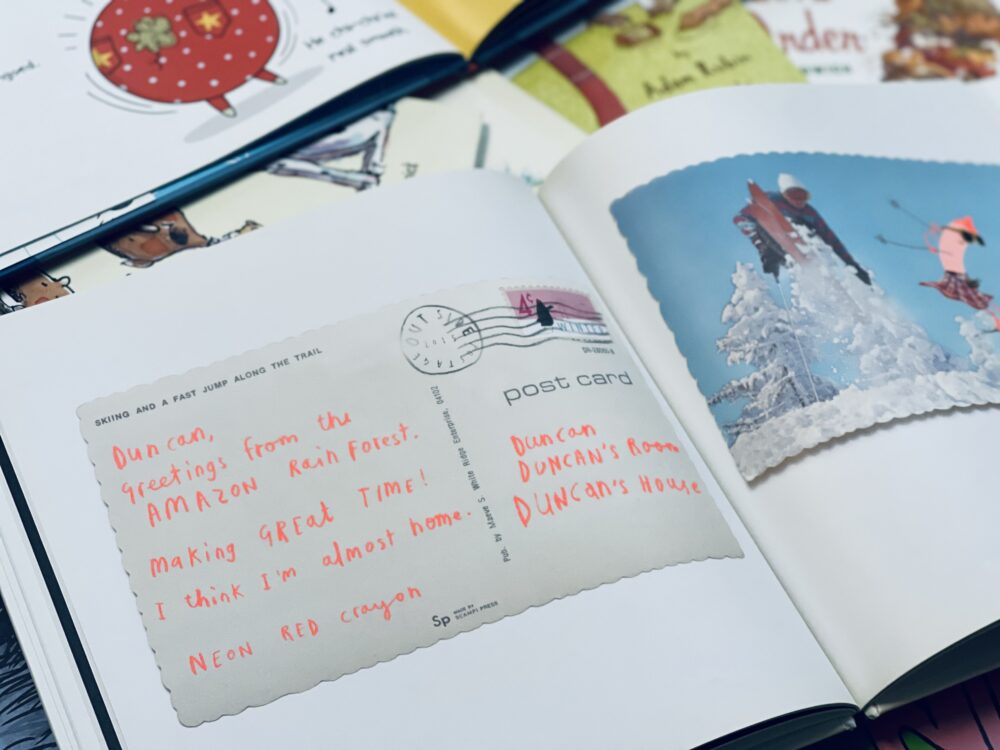 real smooth.
by
Adam Rubin
SKIING AND A FAST JUMP ALONG THE TRAIL
Duncan,
greetings from the
AMAZON RainForest.
making GREat TIME!
I think I'm almost home.
NEON RED crayon
Sp MADE BY
SCAMPI PRESS
Pub. by Maeve S. White Ridge Enterprise, 04102
4c
WINTER
post card
Duncan
DUNCAN'S Room
DUNCan's House